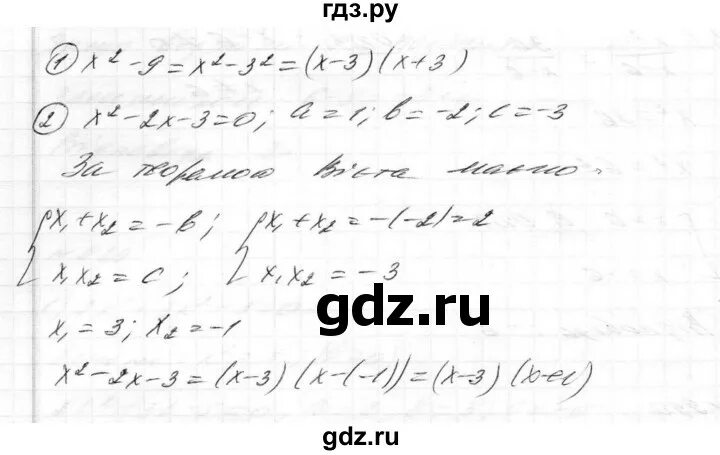 гдз.ру
① x² - 9 = x² - 3² = (x-3)(x+3)
② x² - 2x - 3 = 0; a = 1; b = -2; c = -3
За теоремою Вієта маємо:
{ x₁ + x₂ = -b; { x₁ + x₂ = -(-2) = 2
x₁x₂ = c; x₁x₂ = -3
gdz.ru
x₁ = 3; x₂ = -1
x² - 2x - 3 = (x-3)(x-(-1)) = (x-3)(x+1)
gdz.ru